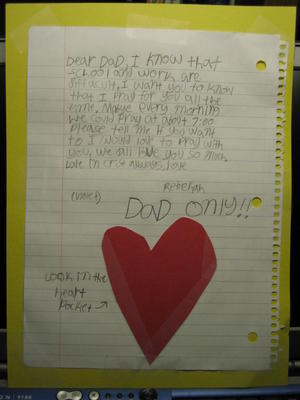 Dear Dad, I know that
school and work are
difficult, I want you to know
that I pray for you all the
time. Maybe every morning
we could pray at about 7:00
please tell me if you want
to I would love to pray with
you, we all love you so much,
love in crist always, love
Rebekah
(violet)
DaD ONLY!!
Look in the
heart
Pocket